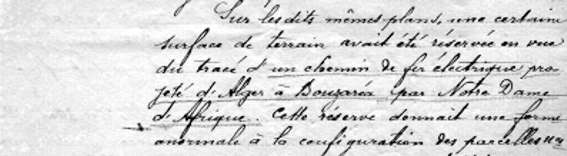 Sur lesdits mêmes plans, une certaine
surface de terrain avait été réservée en vue
du tracé d'un chemin de fer électrique pro-
jeté d'Alger à Bouzaréa par Notre Dame
d'Afrique. Cette réserve donnait une forme
anormale à la configuration des parcelles nos